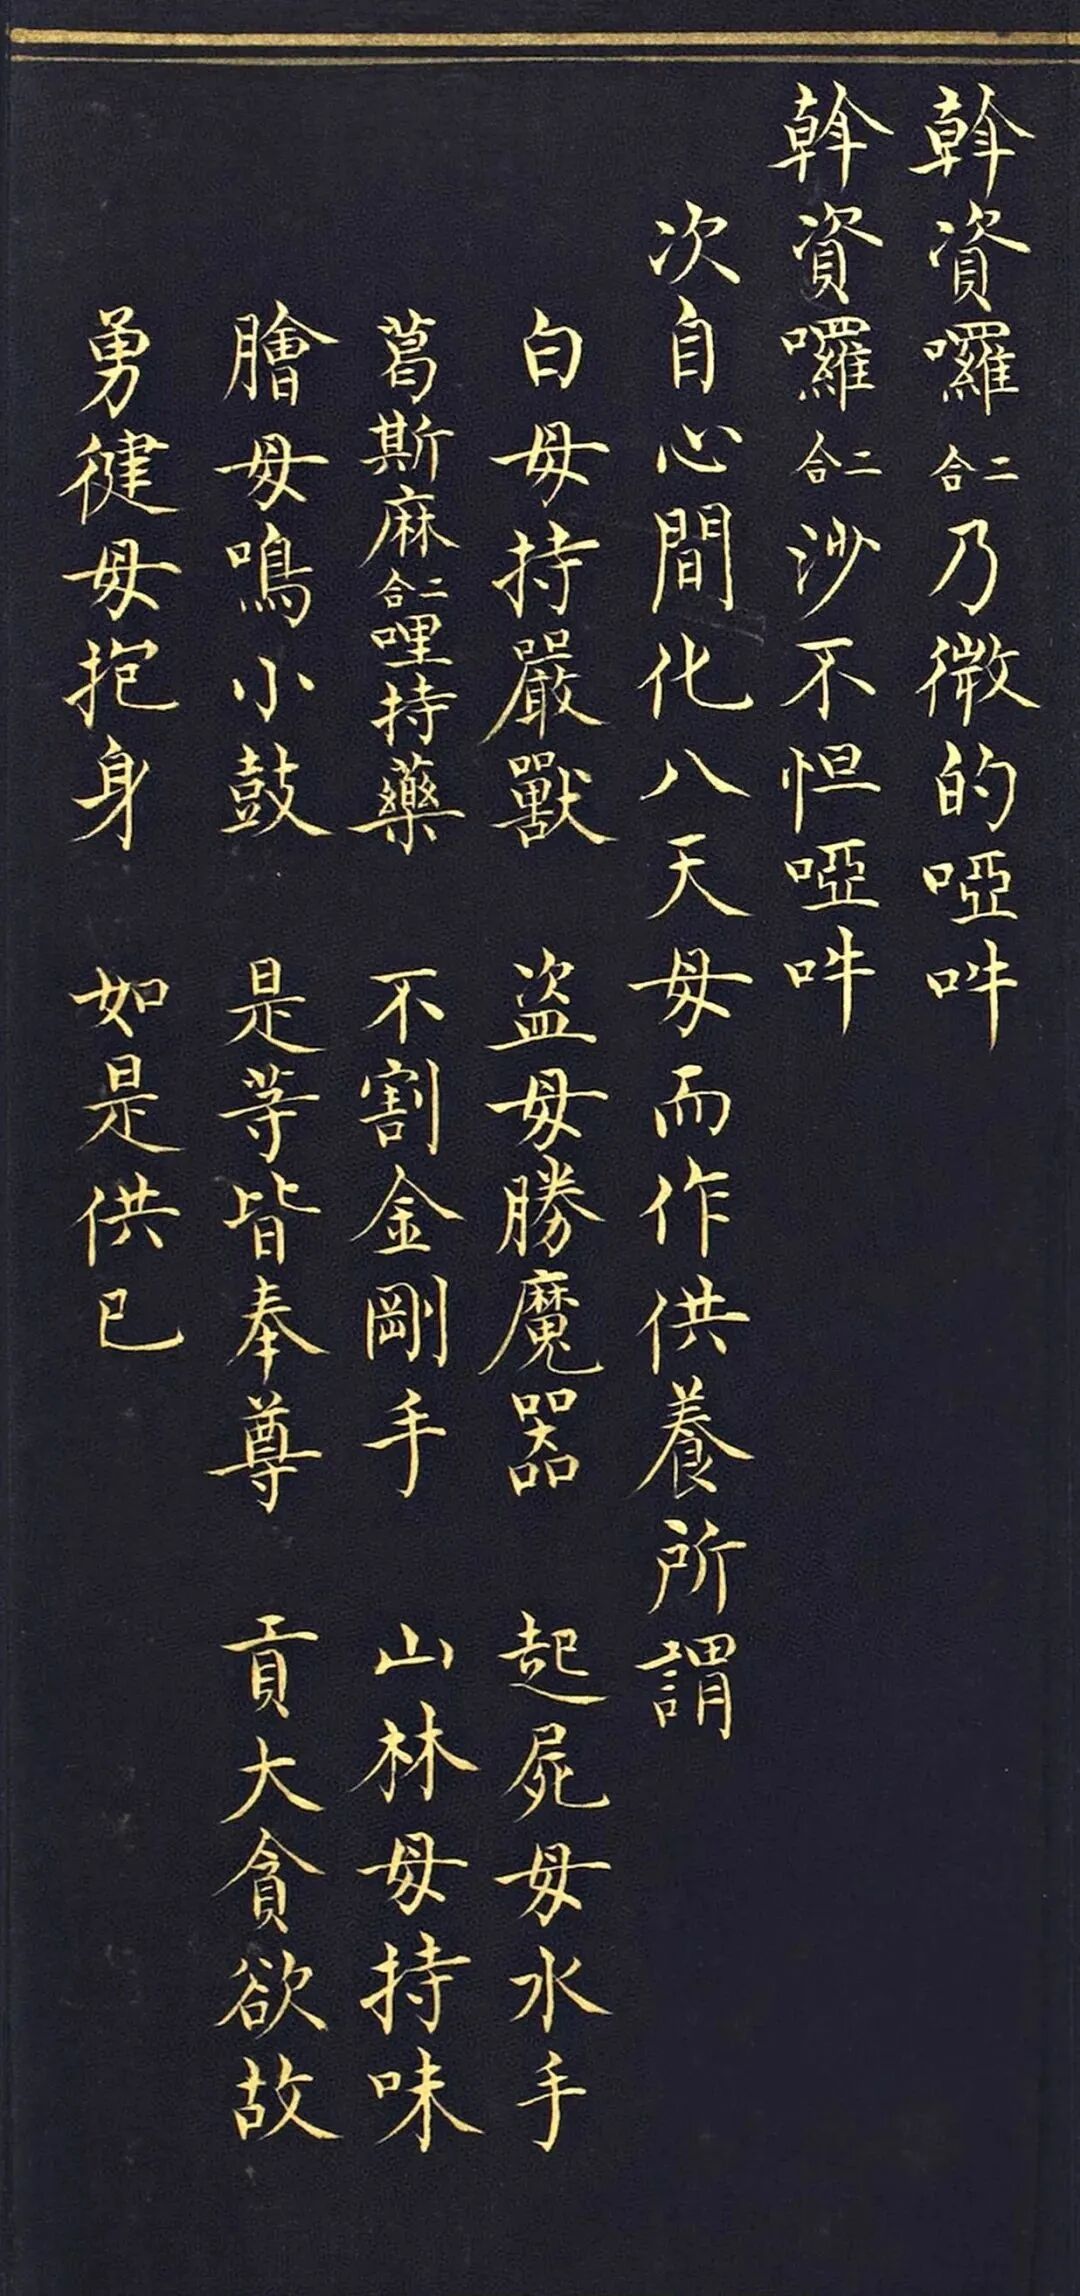 斡資囉二合乃微的啞吽
斡資囉二合沙不怛啞吽
次自心間化八天母而作供養所謂
白母持嚴獸 盗母勝魔器 起屍母水手
葛斯麻二合哩持藥 不割金剛手 山林母持味
膾母鳴小鼓 是等皆奉尊 貢大貪欲故
勇健母抱身 如是供已